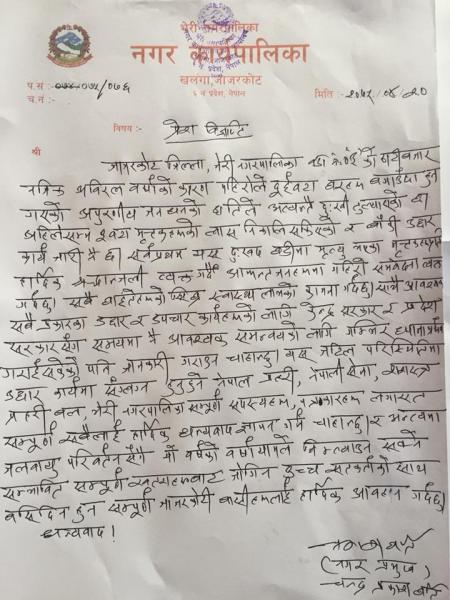 भेरी नगरपालिका
नगर कार्यपालिका
खलंगा, जाजरकोट
६ नं प्रदेश, नेपाल
प.सं : ०७५/०७६
च.नं :
मिति :- २०७५/०४/२०
विषय :- प्रेस विज्ञप्ति
श्री
जाजरकोट जिल्ला, भेरी नगरपालिका वडा नं. को
अविरल वर्षाको कारण पहिरोले दुईवटा घरमा
गएको अपुरणीय जनधनको क्षतिले अत्यन्तै दुःखी तुल्याएको छ।
अहिलेसम्म मृतकहरुको लास निकालि सकिएको र बाँकी उद्दार
कार्य जारी नै छ। सर्वप्रथम यस दुःखद घडीमा मृत्यु भएका मृतकहरुप्रति
हार्दिक श्रद्धाञ्जली व्यक्त गर्दै आफन्तजनहरुमा गहिरो समवेदना व्यक्त
गर्दछु। सबै घाइतेहरुको शिघ्र स्वास्थ्य लाभको कामना गर्दछु। साथै आवश्यक
सबै प्रकारका उद्दार र उपचार कार्यहरुको लागि केन्द्र सरकार र प्रदेश
सरकार सँग समयमा नै आवश्यक समन्वयको लागि गम्भिर ध्यानाकर्षण
गराईसकेको पनि जानकारी गराउन चाहान्छु। यस जटिल परिस्थितिमा
उद्दार कार्यमा संलग्न हुनुहुने नेपाल प्रहरी, नेपाली सेना, शसस्त्र
प्रहरी बल, भेरी नगरपालिका सम्पूर्ण सदस्यहरु, पत्रकारहरु लगायत
सम्पूर्ण सबैलाई हार्दिक धन्यवाद ज्ञापन गर्न चाहान्छु। र अन्त्यमा
जलवायु परिवर्तन सँगै यो वर्षको वर्षायामले निम्त्याउन सक्ने
सम्भावित सम्पूर्ण खतराहरुबाट जोगिन उच्च सतर्कताका साथ
बसिदिन हुन सम्पूर्ण जाजरकोटी बासीहरुलाई हार्दिक आव्हान गर्दछु।
धन्यवाद !
(नगर प्रमुख)
चन्द्र प्रकाश घर्ती